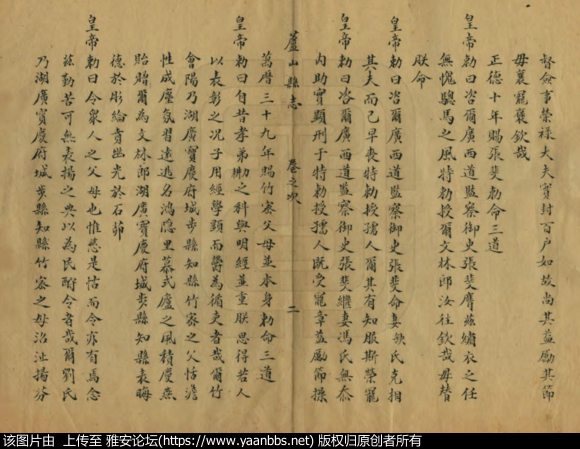 督僉事榮祿大夫實封百户如故尚其益勵其節
毋褻寵褒欽哉
正德十年賜張斐勅命三道
皇帝勅曰咨爾廣西道監察御史張斐膺茲繡衣之任
無愧驄馬之風特勅授爾文林郎汝往欽哉毋替
朕命
皇帝勅曰咨爾廣西道監察御史張斐命妻 氏克相
其夫而已早喪特勅授孺人爾其有知服斯榮寵
皇帝勅曰咨爾廣西道監察御史張斐繼妻馮氏無忝
内助實顯刑于特勅授孺人既受寵章益勵節操
蘆山縣志 卷之 二
萬曆三十九年賜竹密父母並本身勅命三道
皇帝勅曰自昔孝弟 之科與明經並重朕思得若人
以表彰之况子用經學顯而鬱為循吏者哉爾竹
會陽乃湖廣寶慶府城步縣知縣竹密之父恬澹
性成塵氛習遠逃名鴻隱里慕式廬之風積慶燕
貽贈爾為文林郎湖廣寶慶府城步縣知縣表晦
德於彤綸賁幽光於石
皇帝勅曰令衆人之父母也惟慈是怙而令亦有焉念
茲勤苦可無表揚之典以為民酬令者哉爾劉氏
乃湖廣寶慶府城步縣知縣竹密之母沼沚揚芬
该图片由 上传至 雅安论坛(https://www.yaanbbs.net) 版权归原创者所有